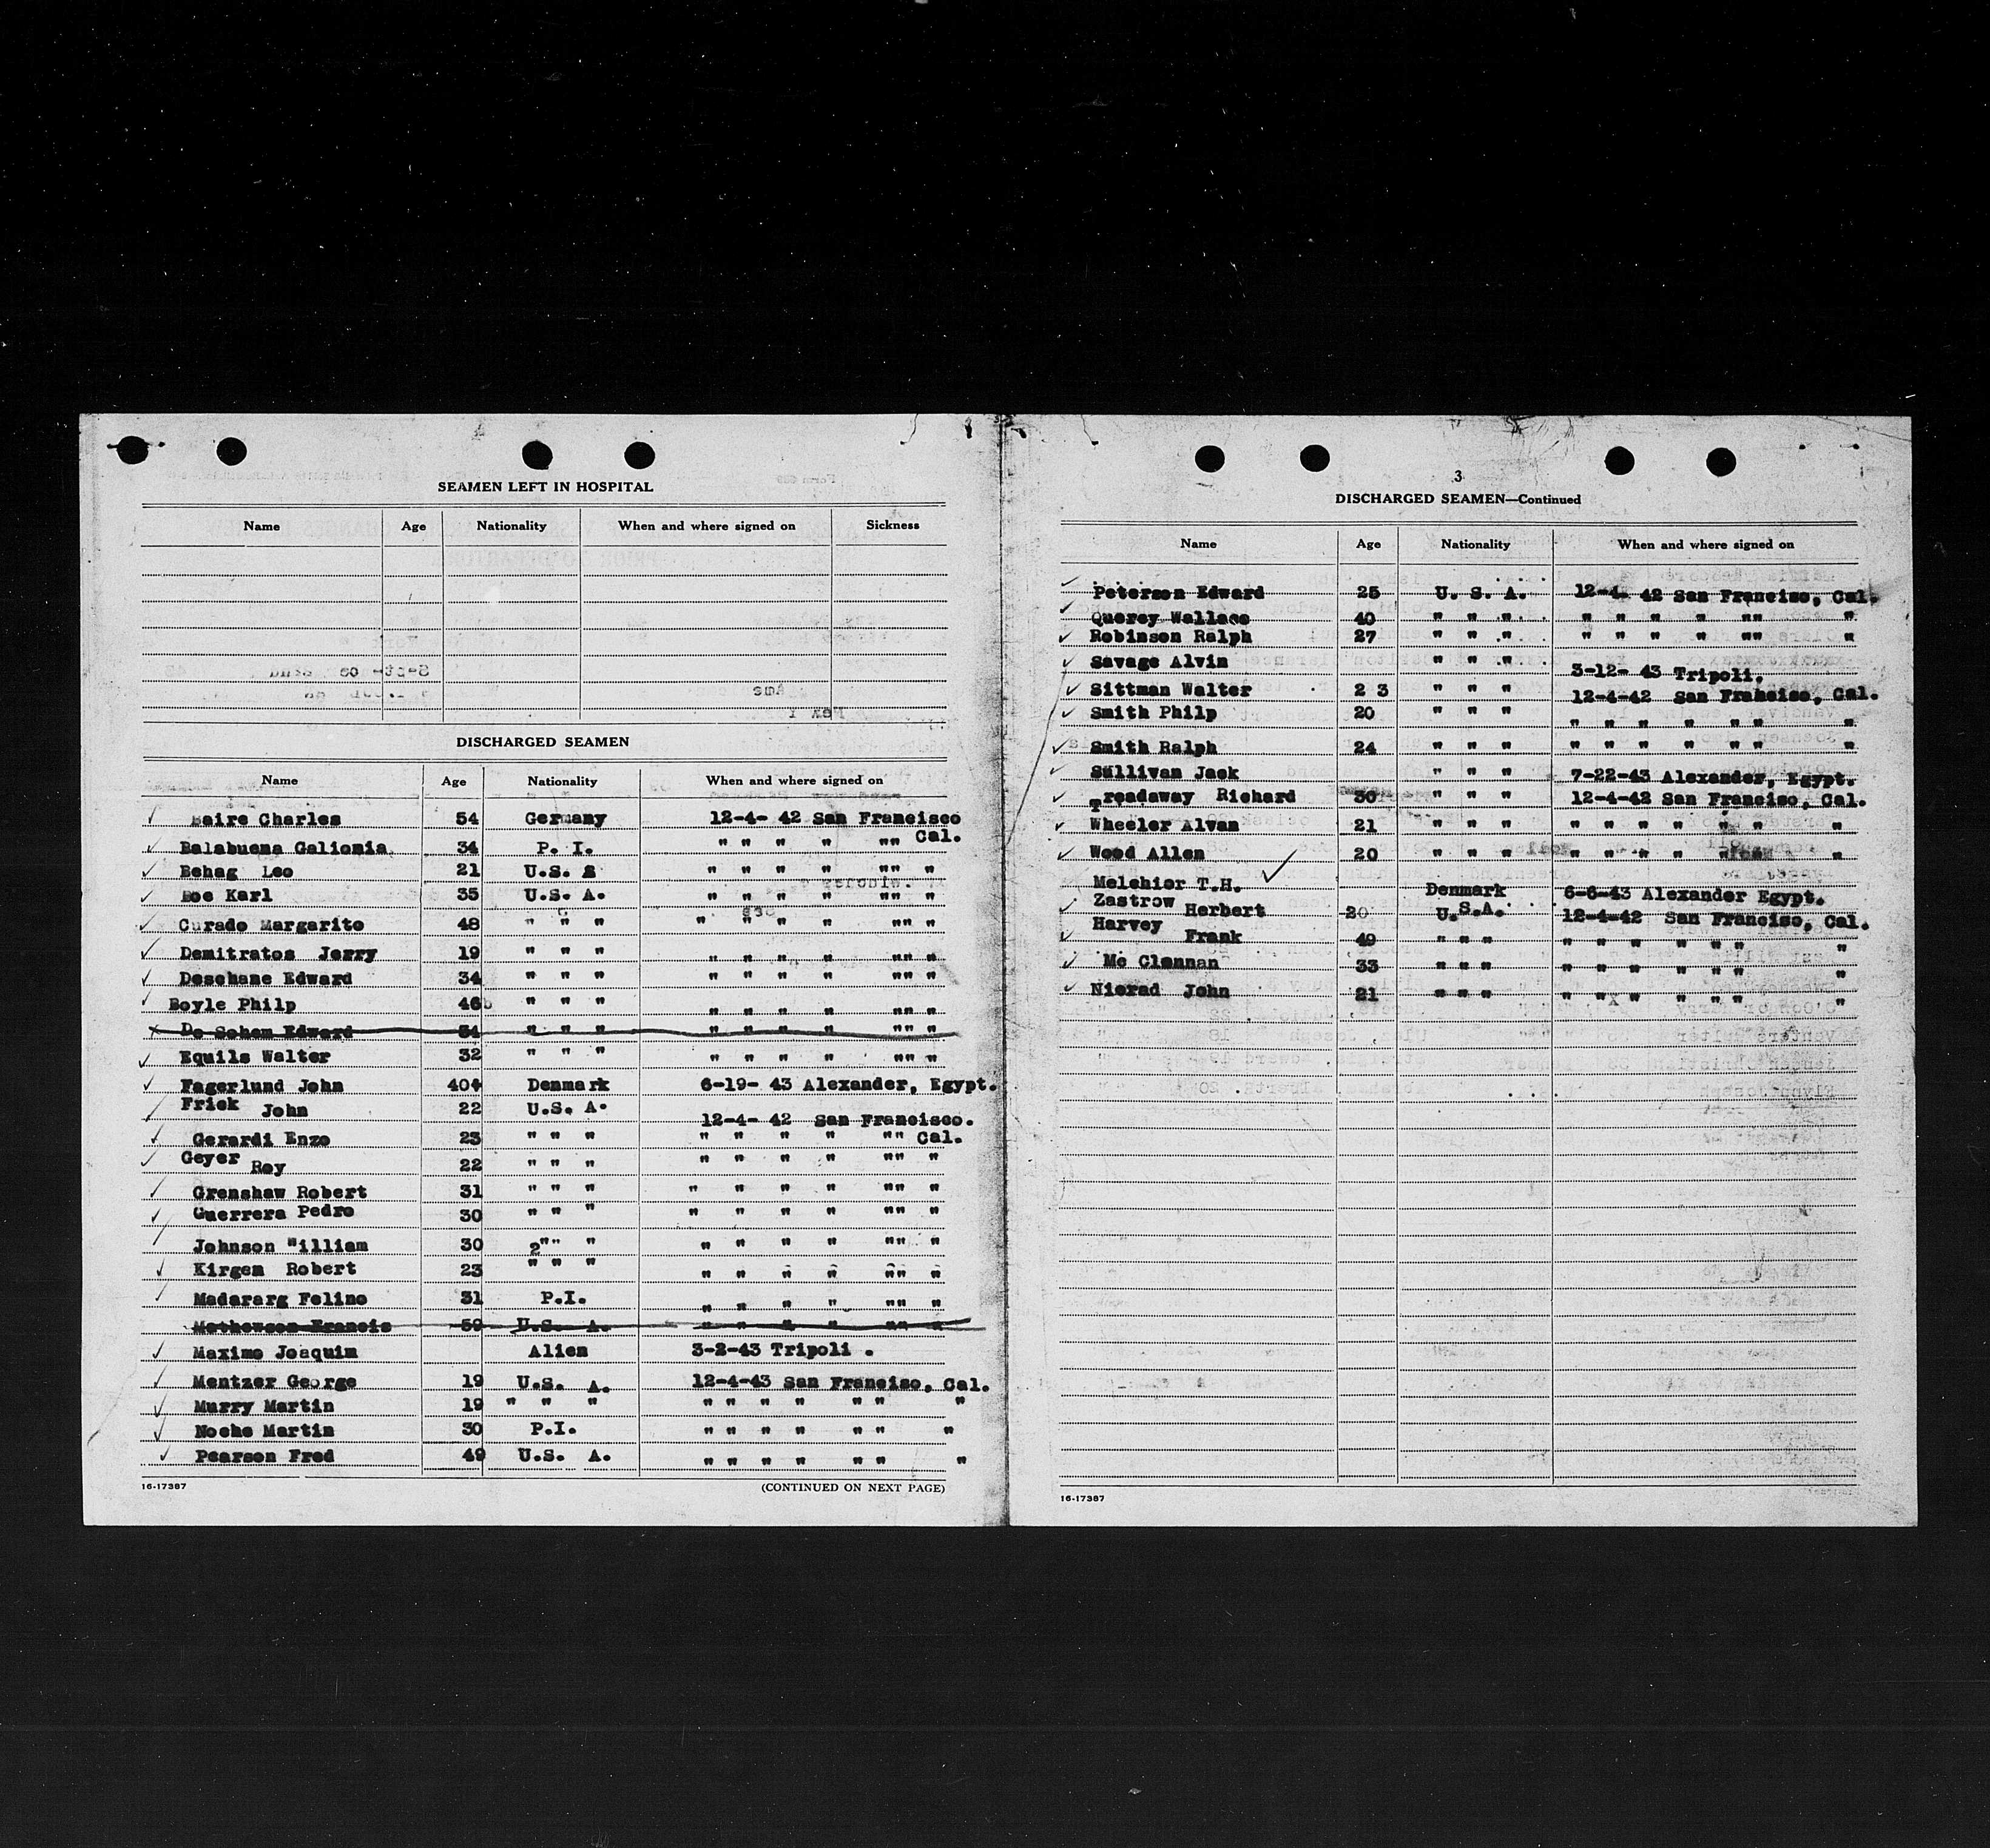 SEAMEN LEFT IN HOSPITAL
Name Age Nationality When and where signed on Sickness
DISCHARGED SEAMEN
Name Age Nationality When and where signed on
✓ Baire Charles 54 Germany 12-4- 42 San Francisco
✓ Balabuena Galionia 34 P. I. " " " " "" Cal.
✓ Behag Leo 21 U.S. " " " " "" "
✓ Boe Karl 35 U.S. A. " " " " "" "
✓ Curado Margarito 48 " " " " " " " "" "
✓ Demitratos Jerry 19 " " " " " " " "" "
✓ Deschane Edward 34 " " " " " " " "" "
✓ Boyle Philp 46 " " " " " " " "" "
x De Schen Edward 34 " " " " " " " "" "
✓ Equils Walter 32 " " " " " " " "" "
✓ Fagerlund John 40 Denmark 6-19- 43 Alexander, Egypt.
✓ Frick John 22 U.S. A. 12-4- 42 San Francisco.
✓ Gerardi Enzo 23 " " " " " " " "" Cal.
✓ Geyer Roy 22 " " " " " " " "" "
✓ Grenshaw Robert 31 " " " " " " " "" "
✓ Guerrera Pedro 30 " " " " " " " "" "
✓ Johnson William 30 2"" " " " " " "" "
✓ Kirgen Robert 23 " " " " " " " "" "
✓ Madararg Felino 31 P.I. " " " " "" "
Mathewson Francis 59 U.S. A. " " " " "" "
✓ Maximo Joaquim Alien 3-2-43 Tripoli .
✓ Mentzer George 19 U.S. A. 12-4-43 San Franciso, Cal.
✓ Murry Martin 19 " " " " " " " " " "
✓ Noche Martin 30 P.I. " " " " " " "
✓ Pearson Fred 49 U.S. A. " " " " " " "
16-17387 (CONTINUED ON NEXT PAGE)
3
DISCHARGED SEAMEN—Continued
Name Age Nationality When and where signed on
✓ Peterson Edward 25 U. S. A. 12-4- 42 San Franciso, Cal.
✓ Querey Wallace 40 " " " " " " " "" "
✓ Robinson Ralph 27 " " " " " " " "" "
✓ Savage Alvin " " " 3-12- 43 Tripoli.
✓ Sittman Walter 2 3 " " " 12-4-42 San Franciso, Cal.
✓ Smith Philp 20 " " " " " " " " " "
✓ Smith Ralph 24 " " " " " " " " " "
✓ Sullivan Jack " " " 7-22-43 Alexander, Egypt.
✓ Treadaway Richard 30 " " " 12-4-42 San Franciso, Cal.
✓ Wheeler Alvan 21 " " " " " " " " " "
✓ Wood Allen 20 " " " " " " " " " "
Melchior T.H. ✓ Denmark 6-6-43 Alexander Egypt.
✓ Zastrow Herbert 20 U.S.A. 12-4-42 San Franciso, Cal.
✓ Harvey Frank 49 " " " " " " " " " "
✓ Mc Clennan 33 " " " " " " " " " "
✓ Nierad John 21 " " " " " " " " " "
16-17387